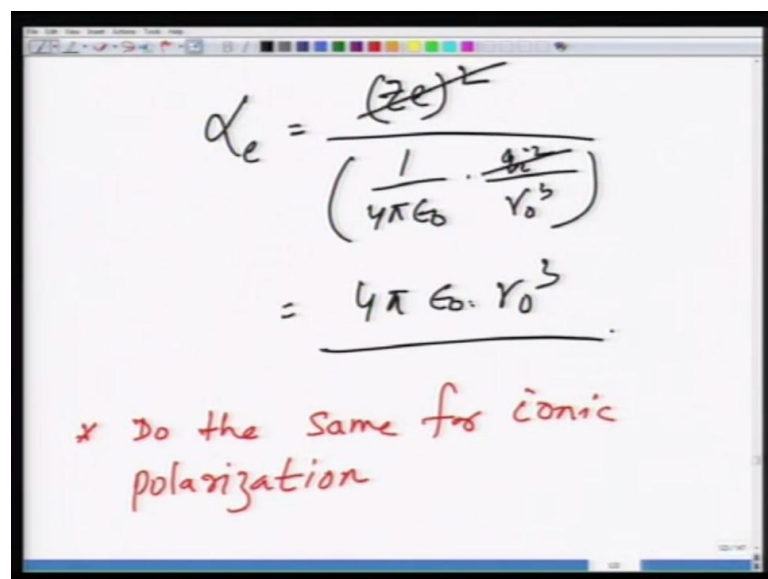 File Edit View Insert Actions Tools Help
αe = (Ze)² / ( 1/4πε0 . q²/r0³ )
= 4π ε0. r0³
* Do the same for ionic
polarization